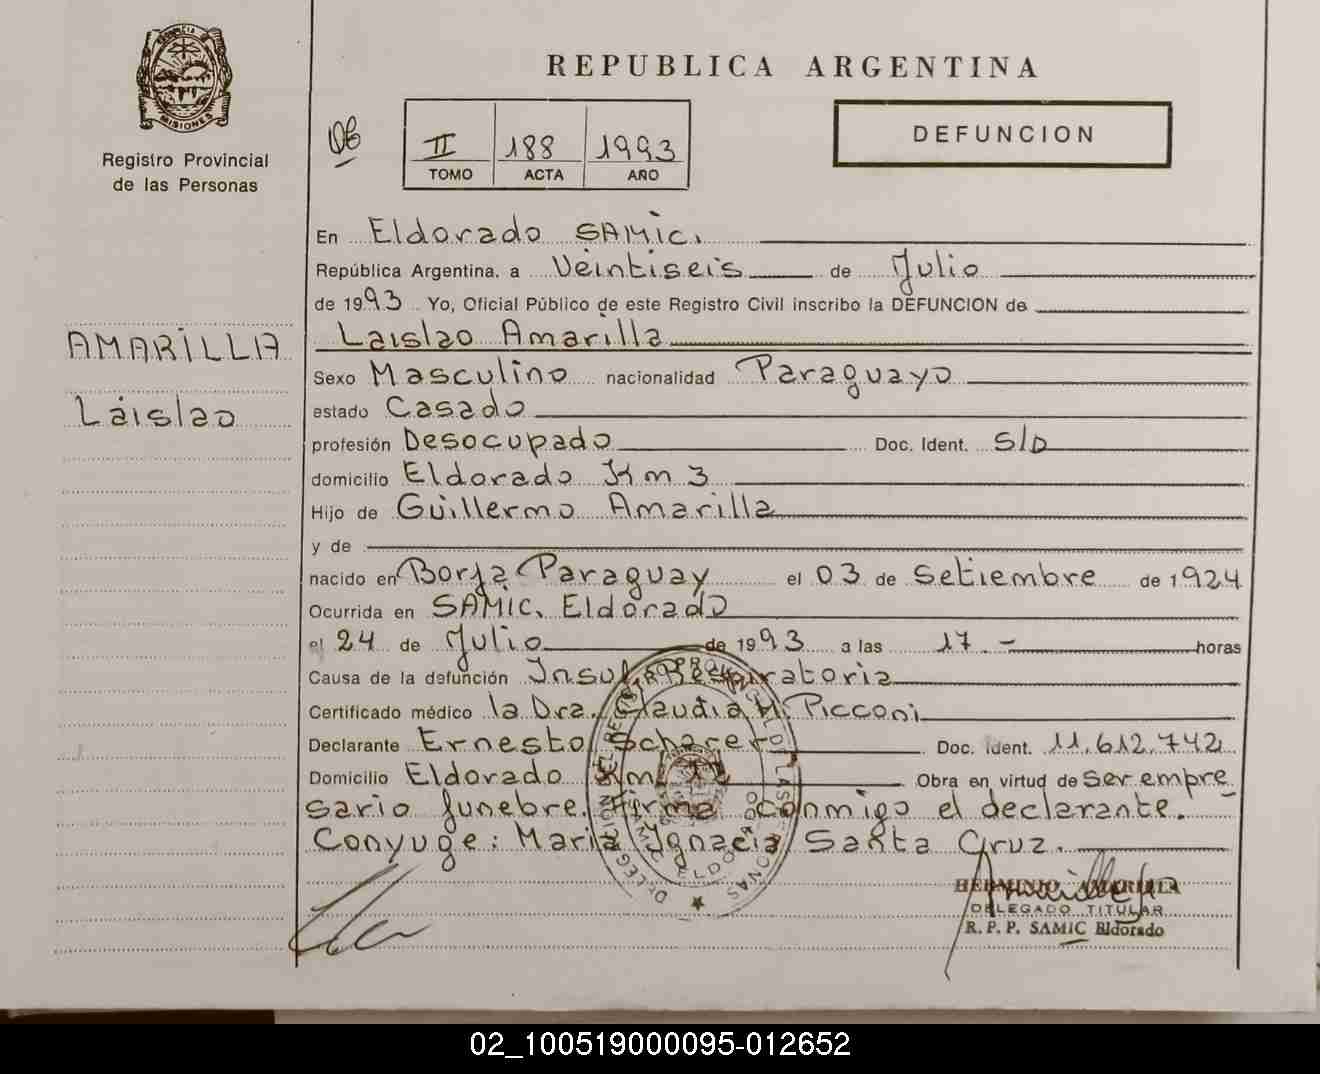 REPUBLICA ARGENTINA
MISIONES
Registro Provincial
de las Personas
II 188 1993
TOMO ACTA AÑO
DEFUNCION
En Eldorado SAMIC.
República Argentina, a Veintiseis de Julio
de 1993 Yo, Oficial Público de este Registro Civil inscribo la DEFUNCION de
AMARILLA
Láislao
Laislao Amarilla
Sexo Masculino nacionalidad Paraguayo
estado Casado
profesión Desocupado Doc. Ident. S/D
domicilio Eldorado Km 3
Hijo de Guillermo Amarilla
y de
nacido en Borja Paraguay el 03 de Setiembre de 1924
Ocurrida en SAMIC. Eldorado
el 24 de Julio de 1993 a las 17.- horas
Causa de la defunción Insuf. Respiratoria
Certificado médico la Dra. Claudia M. Picconi
Declarante Ernesto Scharer Doc. Ident. 11.612.742
Domicilio Eldorado Km Obra en virtud de ser empre
sario funebre. Firma conmigo el declarante.
Conyuge: Maria Ignacia Santa Cruz.
HERMINIO AMARILLA
DELEGADO TITULAR
R. P. P. SAMIC Eldorado
02_100519000095-012652